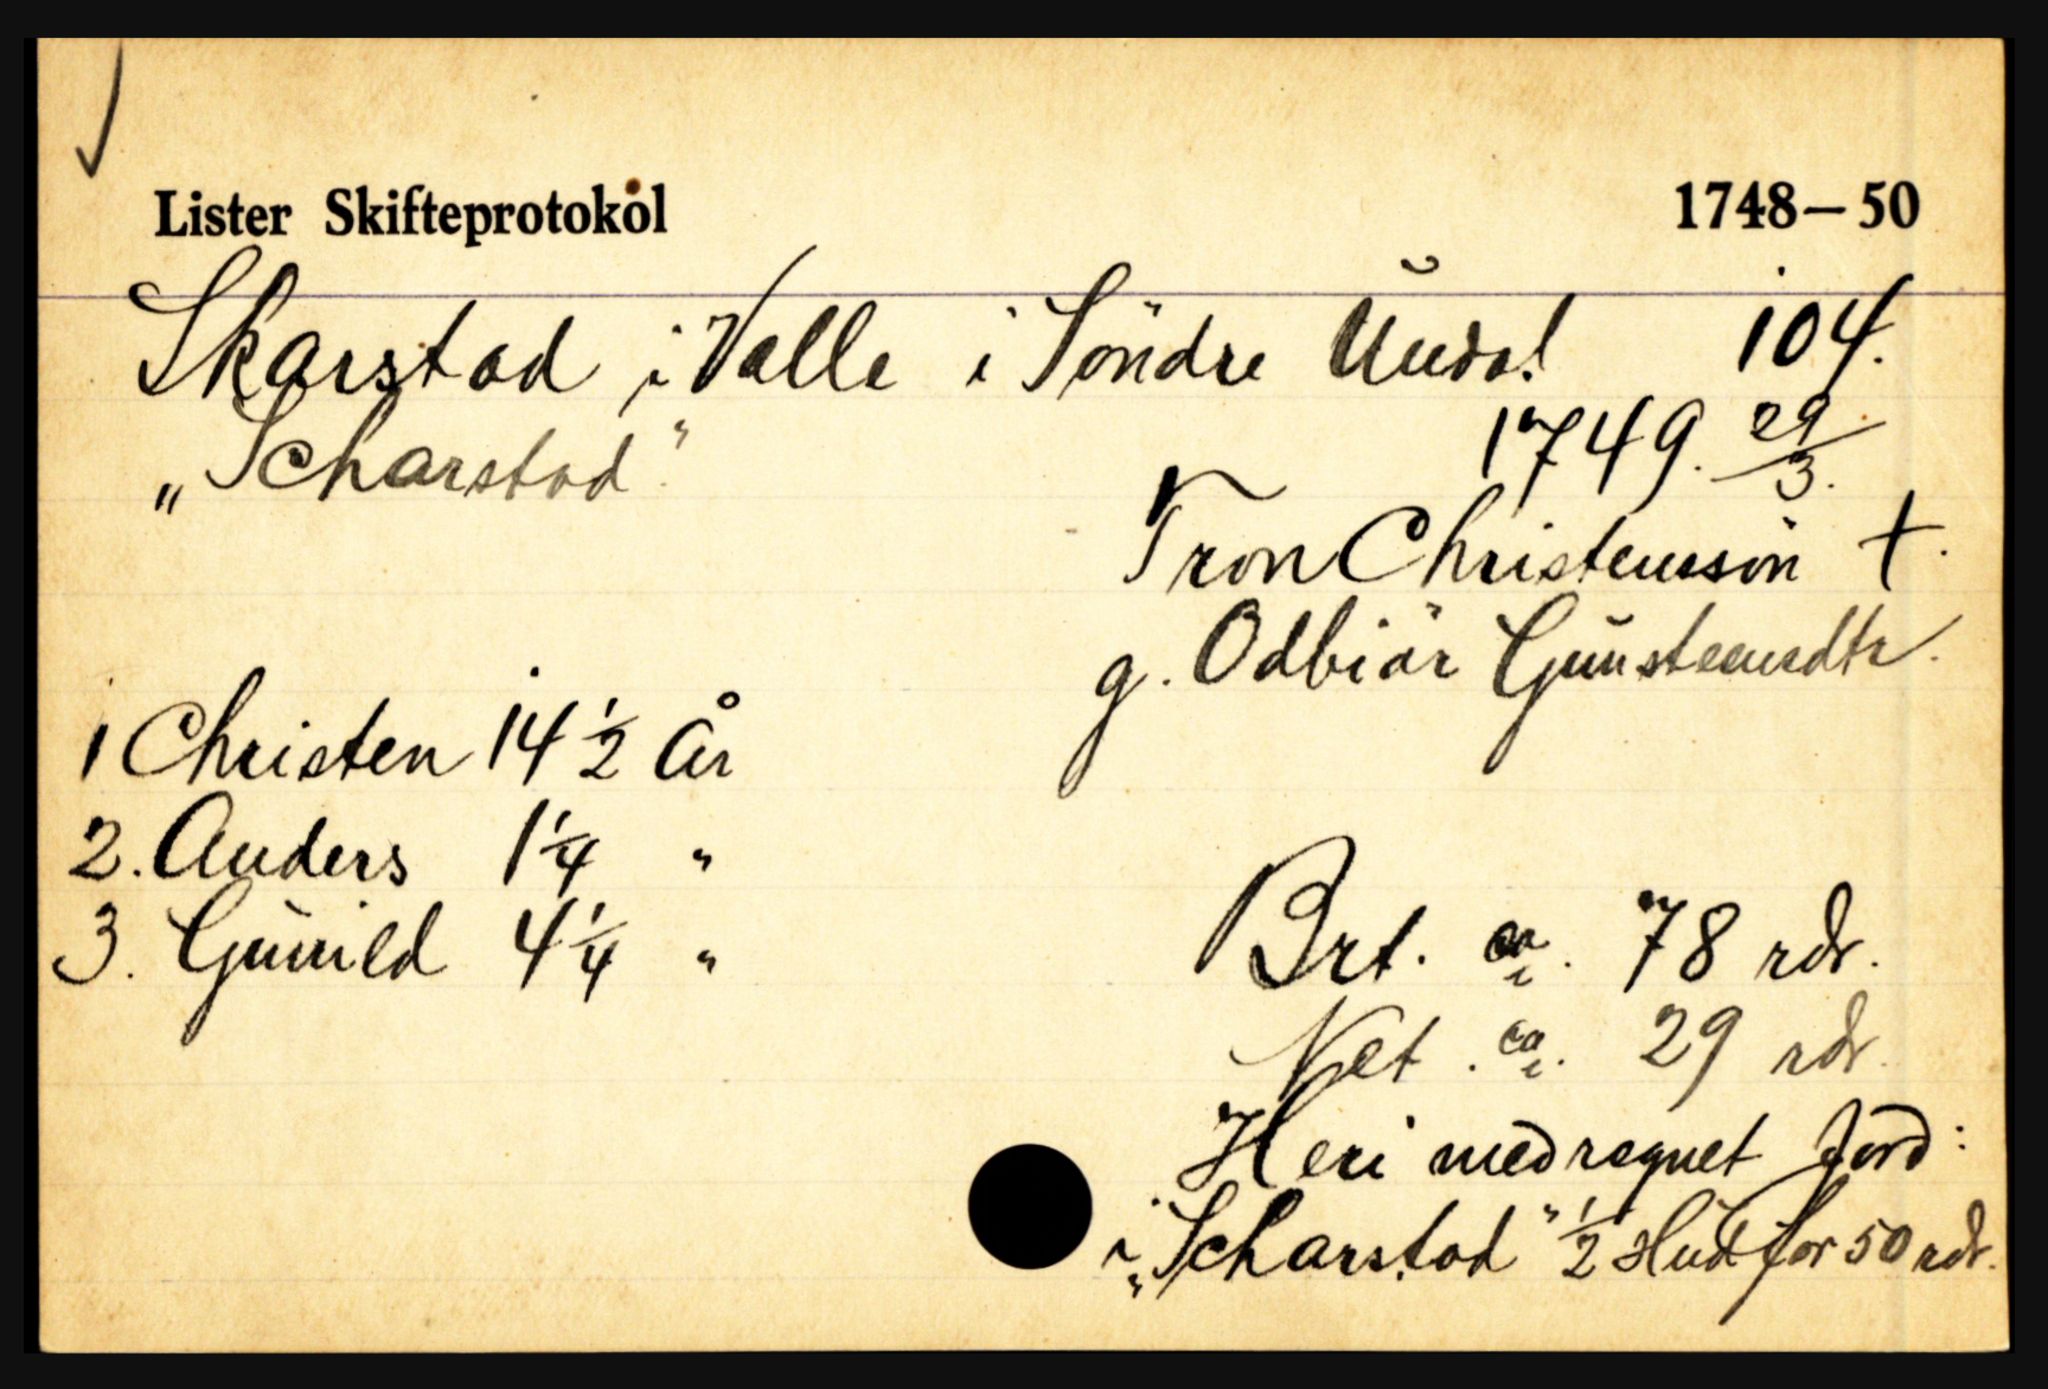 Lister Skifteprotokol 1748–50
Skarstad i Valle i Söndre Undal 104.
„Scharstad" 1749. 29/3.
Tron Christensön †.
g. Odbiör Gunstensdtr.
1 Christen 14 1/2 År
2. Anders 1 1/4 "
3. Gunild 4 1/4 "
Brt. ca. 78 rdr.
Net. ca. 29 rdr.
Heri medregnet Jord:
i „Scharstad" 1/2 Hud for 50 rdr.